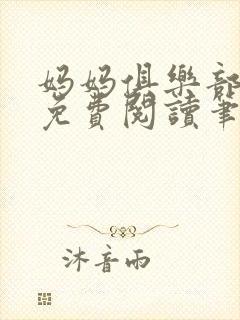 媽媽俱樂部
免費閱讀筆
沐音雨